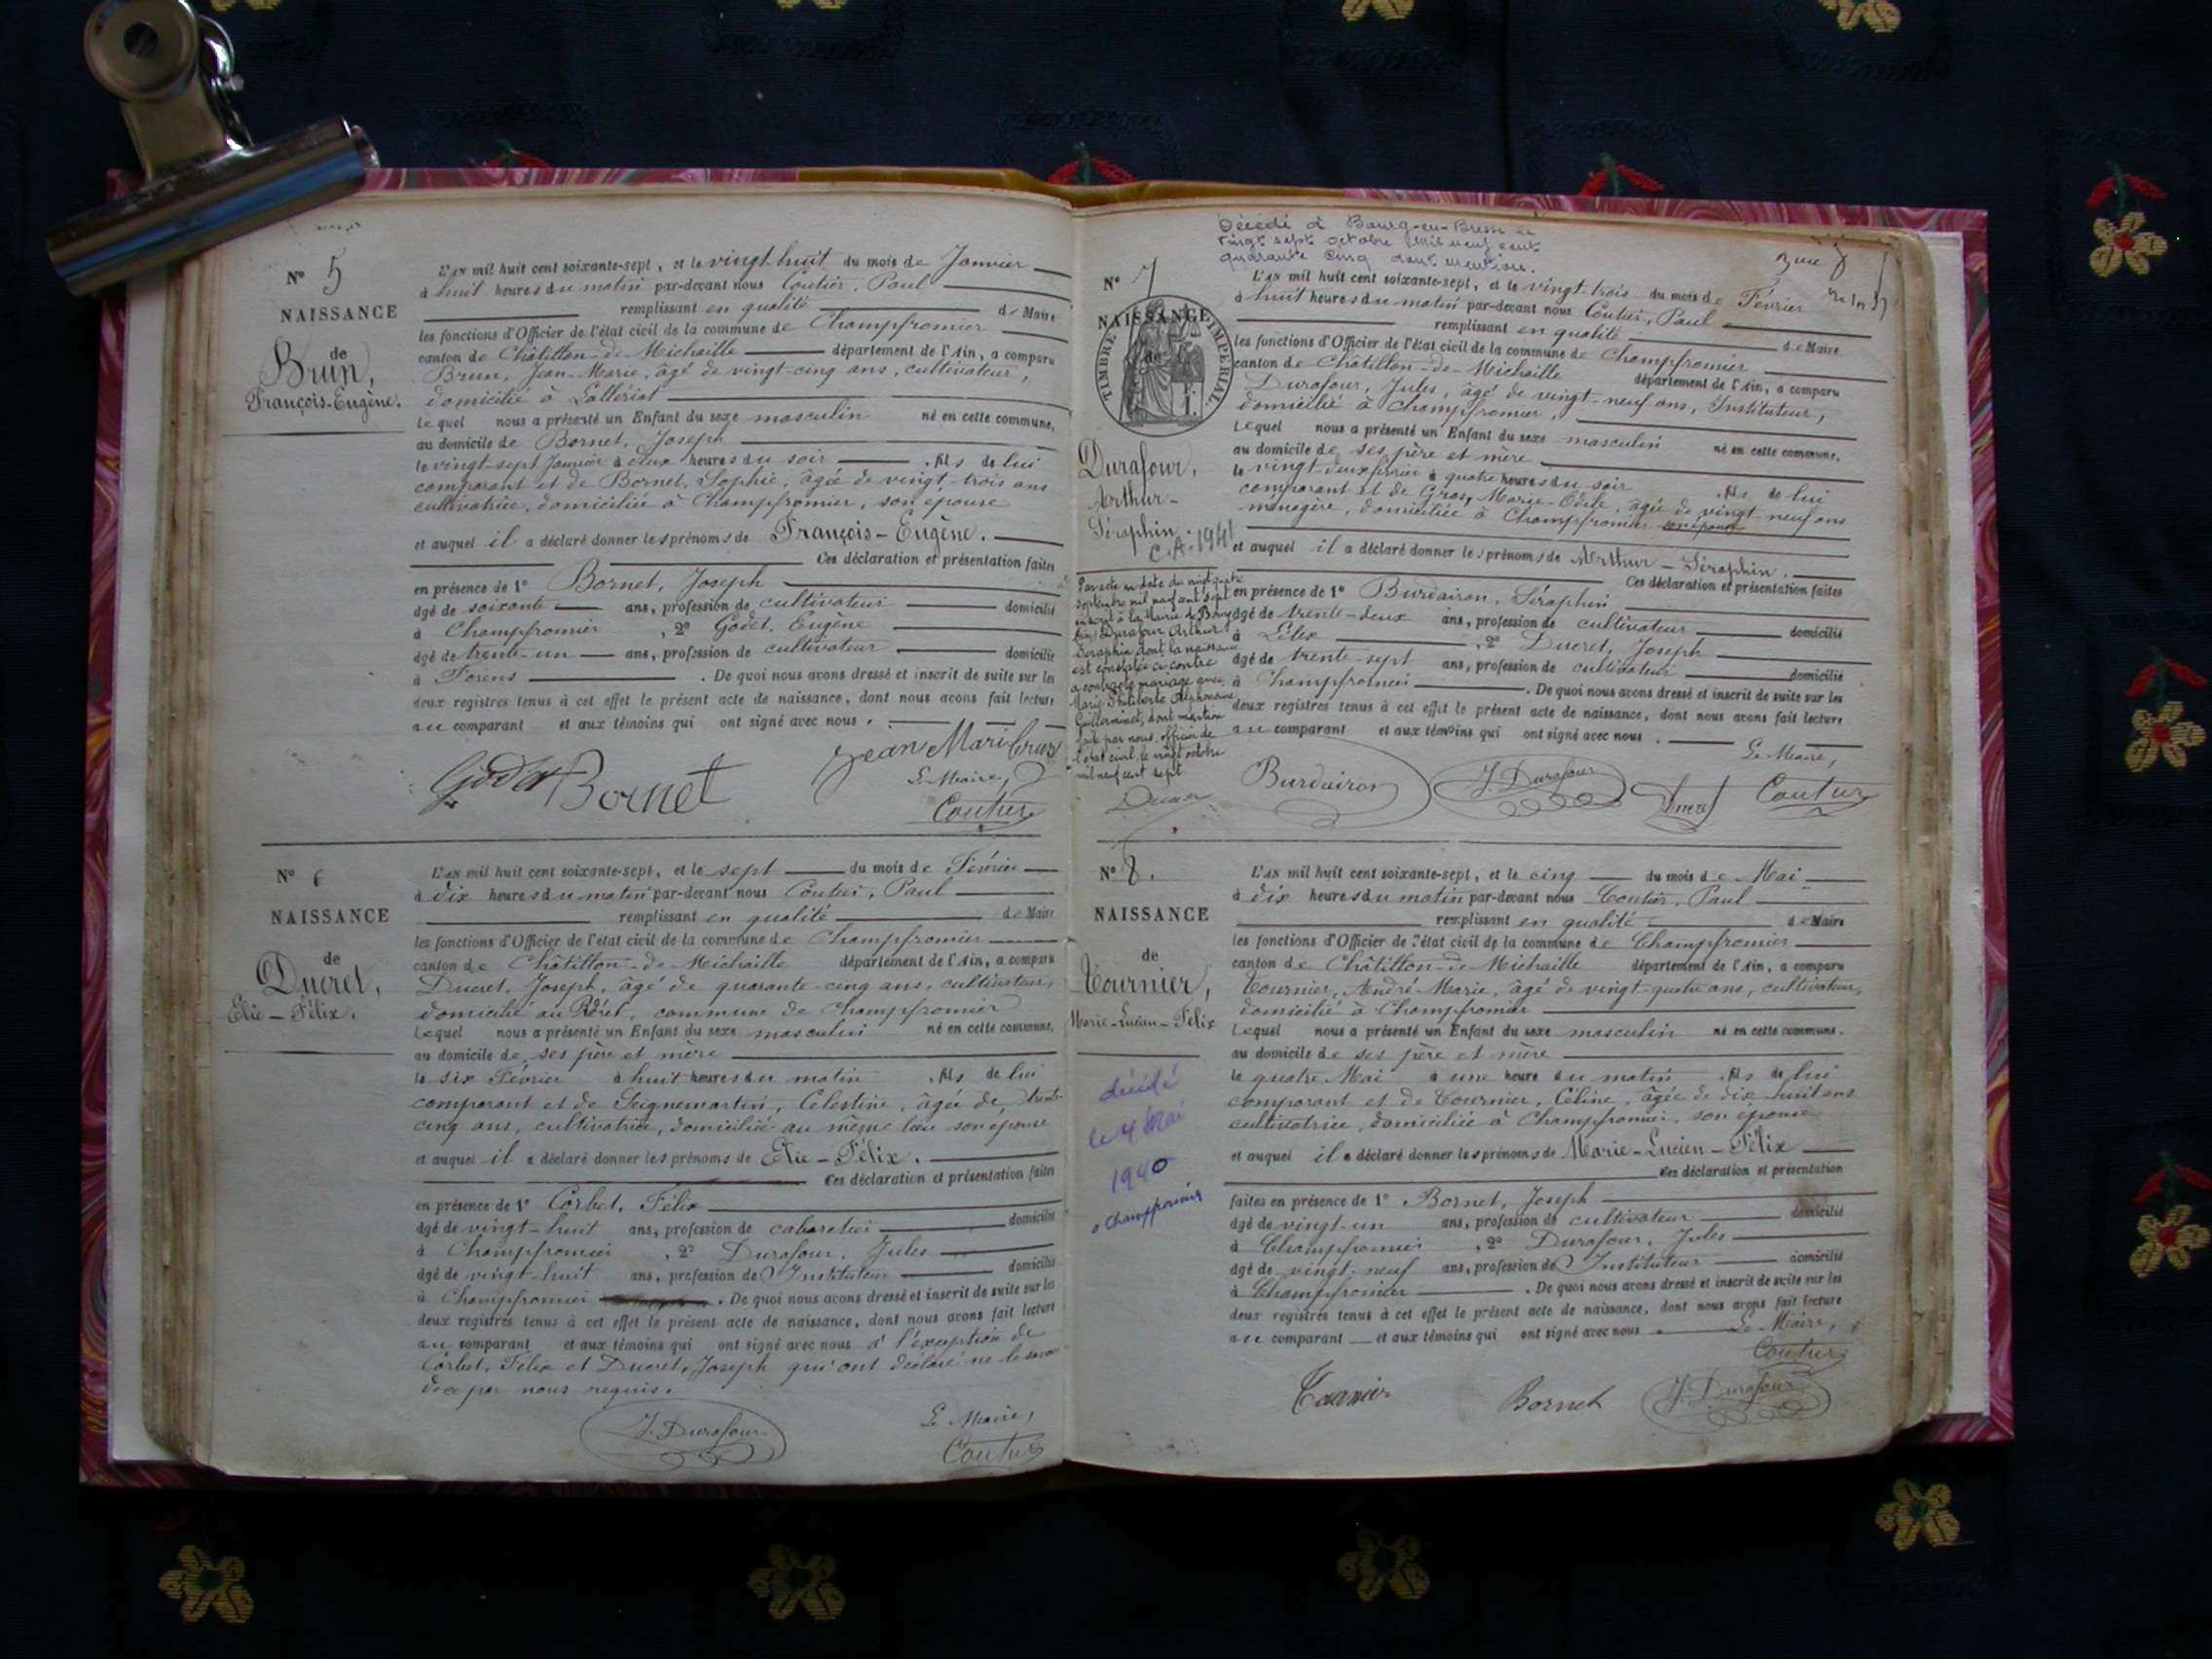 N° 5
NAISSANCE
de
Brun,
François-Eugène.
L'an mil huit cent soixante-sept, et le vingt-huit du mois de Janvier
à huit heures du matin par-devant nous Coutier, Paul
remplissant en qualité de Maire
les fonctions d'Officier de l'état civil de la commune de Champfromier
canton de Châtillon-de-Michaille département de l'Ain, a comparu
Brun, Jean-Marie, âgé de vingt-cinq ans, cultivateur,
domicilié à
Lequel nous a présenté un Enfant du sexe masculin né en cette commune,
au domicile de Bornet, Joseph
le vingt-sept Janvier à deux heures du soir, fils de lui
comparant et de Bornet, Sophie, âgée de vingt-trois ans
cultivatrice, domiciliée à Champfromier, son épouse
et auquel il a déclaré donner les prénoms de François-Eugène.
Ces déclaration et présentation faites
en présence de 1° Bornet, Joseph
âgé de soixante ans, profession de cultivateur domicilié
à Champfromier, 2° Godet, Eugène
âgé de trente-un ans, profession de cultivateur domicilié
à Forens. De quoi nous avons dressé et inscrit de suite sur les
deux registres tenus à cet effet le présent acte de naissance, dont nous avons fait lecture
au comparant et aux témoins qui ont signé avec nous.
Jean Mari brun
Godet Bornet
Le Maire,
Coutier
N° 6
NAISSANCE
de
Ducret,
Elie-Félix.
L'an mil huit cent soixante-sept, et le sept du mois de Février
à dix heures du matin par-devant nous Coutier, Paul
remplissant en qualité de Maire
les fonctions d'Officier de l'état civil de la commune de Champfromier
canton de Châtillon-de-Michaille département de l'Ain, a comparu
Ducret, Joseph, âgé de quarante-cinq ans, cultivateur,
domicilié au commune de Champfromier
Lequel nous a présenté un Enfant du sexe masculin né en cette commune,
au domicile de ses père et mère
le six Février à huit heures du matin, fils de lui
comparant et de Seignemartin, Célestine, âgée de trente-
cinq ans, cultivatrice, domiciliée au même lieu son épouse
et auquel il a déclaré donner les prénoms de Elie-Félix.
Ces déclaration et présentation faites
en présence de 1° Corbet, Félix
âgé de vingt-huit ans, profession de cabaretier domicilié
à Champfromier, 2° Durafour, Jules
âgé de vingt-huit ans, profession de Instituteur domicilié
à Champfromier. De quoi nous avons dressé et inscrit de suite sur les
deux registres tenus à cet effet le présent acte de naissance, dont nous avons fait lecture
au comparant et aux témoins qui ont signé avec nous à l'exception de
Corbet, Félix et Ducret, Joseph qui ont déclaré ne le savoir
de ce par nous requis.
J. Durafour
Le Maire,
Coutier
Décédé à Bourg-en-Bresse le
vingt sept octobre mil neuf cent
quarante cinq dont mention.
N° 7
NAISSANCE
de
TIMBRE IMPÉRIAL
Durafour,
Arthur-
Séraphin.
C.A. 1941
Par acte en date du vingt quatre
septembre mil neuf cent sept
inscrit à la Mairie de Bourg
Durafour Arthur
Séraphin dont la naissance
est constatée ci contre
a contracté mariage avec
Marie Philiberte Alphonsine
Guillerminet, dont mention
faite par nous, officier de
l'état civil, le vingt octobre
mil neuf cent sept
L'an mil huit cent soixante-sept, et le vingt-trois du mois de Février
à huit heures du matin par-devant nous Coutier, Paul
remplissant en qualité de Maire
les fonctions d'Officier de l'état civil de la commune de Champfromier
canton de Châtillon-de-Michaille département de l'Ain, a comparu
Durafour, Jules, âgé de vingt-neuf ans, Instituteur,
domicilié à Champfromier,
Lequel nous a présenté un Enfant du sexe masculin né en cette commune,
au domicile de ses père et mère
le vingt-deux février à quatre heures du soir, fils de lui
comparant et de Gros, Marie-Odile, âgée de vingt-neuf ans
ménagère, domiciliée à Champfromier son épouse
et auquel il a déclaré donner les prénoms de Arthur-Séraphin.
Ces déclaration et présentation faites
en présence de 1° Burdairon, Séraphin
âgé de trente-deux ans, profession de cultivateur domicilié
à Lélex, 2° Ducret, Joseph
âgé de trente-sept ans, profession de cultivateur domicilié
à Champfromier. De quoi nous avons dressé et inscrit de suite sur les
deux registres tenus à cet effet le présent acte de naissance, dont nous avons fait lecture
au comparant et aux témoins qui ont signé avec nous.
Le Maire,
Burdairon J. Durafour Ducret Coutier
N° 8.
NAISSANCE
de
Tournier,
Marie-Lucien-Félix
décédé
le 4 Mai
1940
à Champfromier
L'an mil huit cent soixante-sept, et le cinq du mois de Mai
à dix heures du matin par-devant nous Coutier, Paul
remplissant en qualité de Maire
les fonctions d'Officier de l'état civil de la commune de Champfromier
canton de Châtillon-de-Michaille département de l'Ain, a comparu
Tournier, André Marie, âgé de vingt-quatre ans, cultivateur,
domicilié à Champfromier
Lequel nous a présenté un Enfant du sexe masculin né en cette commune.
au domicile de ses père et mère
le quatre Mai à une heure du matin, fils de lui
comparant et de Tournier, Céline, âgée de dix-huit ans
cultivatrice, domiciliée à Champfromier, son épouse
et auquel il a déclaré donner les prénoms de Marie-Lucien-Félix
Ces déclaration et présentation
faites en présence de 1° Bornet, Joseph
âgé de vingt-un ans, profession de cultivateur domicilié
à Champfromier, 2° Durafour, Jules
âgé de vingt-neuf ans, profession de Instituteur domicilié
à Champfromier. De quoi nous avons dressé et inscrit de suite sur les
deux registres tenus à cet effet le présent acte de naissance, dont nous avons fait lecture
au comparant et aux témoins qui ont signé avec nous. Le Maire,
Coutier
Tournier Bornet J. Durafour